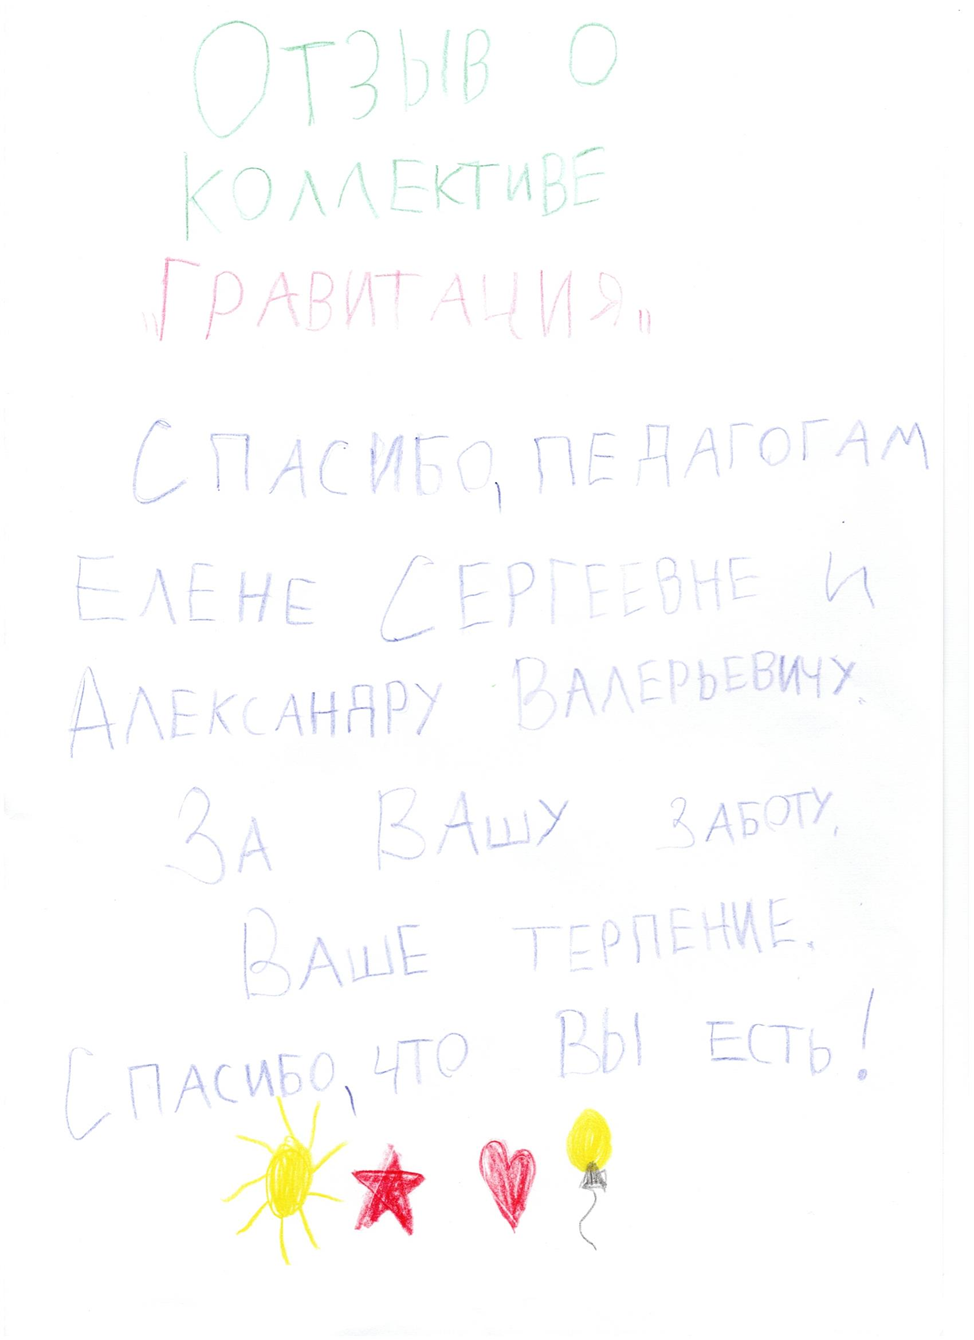 Отзыв о
коллективе
"Гравитация"
Спасибо, педагогам
Елене Сергеевне и
Александру Валерьевичу.
За Вашу заботу,
Ваше терпение.
Спасибо, что Вы есть!